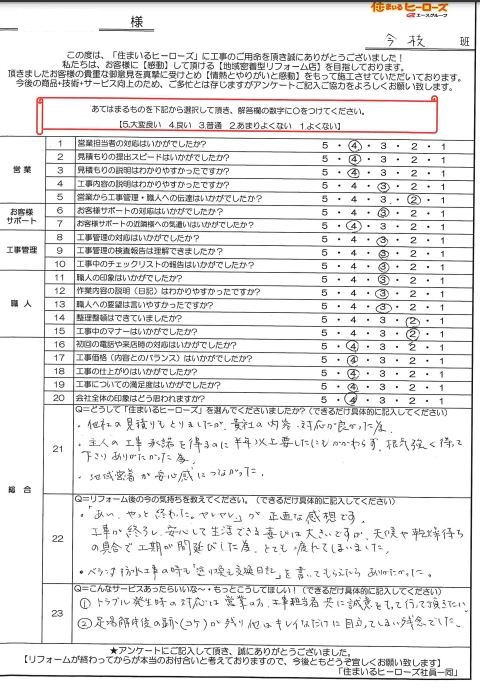 住まいるヒーローズ
エースグループ
様
今枝 班
この度は、「住まいるヒーローズ」に工事のご用命を頂き誠にありがとうございました！
私たちは、お客様に【感動】して頂ける【地域密着型リフォーム店】を目指しております。
頂きましたお客様の貴重な御意見を真摯に受けとめ【情熱とやりがいと感動】をもって施工させていただいております。
今後の商品・技術・サービス向上のため、ご多忙とは存じますがアンケートに記入ご協力をよろしくお願い致します。
あてはまるものを下記から選択して頂き、解答欄の数字に○をつけてください。
【5.大変良い 4.良い 3.普通 2.あまりよくない 1.よくない】
営業
1 営業担当者の対応はいかがでしたか？ 5・4・3・2・1
2 見積もりの提出スピードはいかがでしたか？ 5・4・3・2・1
3 見積もりの説明はわかりやすかったですか？ 5・4・3・2・1
4 工事内容の説明はわかりやすかったですか？ 5・4・3・2・1
5 営業から工事管理・職人への伝達はいかがでしたか？ 5・4・3・2・1
お客様サポート
6 お客様サポートの対応はいかがでしたか？ 5・4・3・2・1
7 お客様サポートの近隣様への気遣いはいかがでしたか？ 5・4・3・2・1
工事管理
8 工事管理の対応はいかがでしたか？ 5・4・3・2・1
9 工事管理の検査報告は理解できましたか？ 5・4・3・2・1
10 工事中のチェックリストの報告はいかがでしたか？ 5・4・3・2・1
職人
11 職人の印象はいかがでしたか？ 5・4・3・2・1
12 作業内容の説明（日記）はわかりやすかったですか？ 5・4・3・2・1
13 職人への要望は言いやすかったですか？ 5・4・3・2・1
14 整理整頓はできていましたか？ 5・4・3・2・1
15 工事中のマナーはいかがでしたか？ 5・4・3・2・1
総合
16 初回の電話や来店時の対応はいかがでしたか？ 5・4・3・2・1
17 工事価格（内容とのバランス）はいかがでしたか？ 5・4・3・2・1
18 工事の仕上がりはいかがでしたか？ 5・4・3・2・1
19 工事についての満足度はいかがでしたか？ 5・4・3・2・1
20 会社全体の印象はどう思われますか？ 5・4・3・2・1
21 Q＝どうして「住まいるヒーローズ」を選んでくださいましたか？（できるだけ具体的に記入してください）
・他社の見積りもとりましたが、貴社の内容、対応が良かった為。
・主人の工事承諾を得るのに半年以上要したにもかかわらず、根気強く待って
下さりありがたかった為。
・地域密着が安心感につながった。
22 Q＝リフォーム後の今の気持ちを教えてください。（できるだけ具体的に記入してください）
・「あい、やっと終わった。ヤレヤレ」が正直な感想です。
工事が終了し、安心して生活できる喜びは大きいですが、天候や乾燥待ち
の具合で工期が間延びした為、とても疲れてしまいました。
・ベランダ防水工事の時も「塗り換え交換日記」を書いてもらえたらありがたかった。
23 Q＝こんなサービスあったらいいな～・もっとこうしてほしい！（できるだけ具体的に記入してください）
① トラブル発生時の対応は営業の方、工事担当者共に誠意をもって行って頂きたい。
② 足場解体後の跡（コケ）が残り他はキレイなだけに目立ってしまい残念でした。
★アンケートにご記入して頂き、誠にありがとうございました。
【リフォームが終わってからが本当のお付合いと考えておりますので、今後ともどうぞ宜しくお願い致します】
「住まいるヒーローズ社員一同」